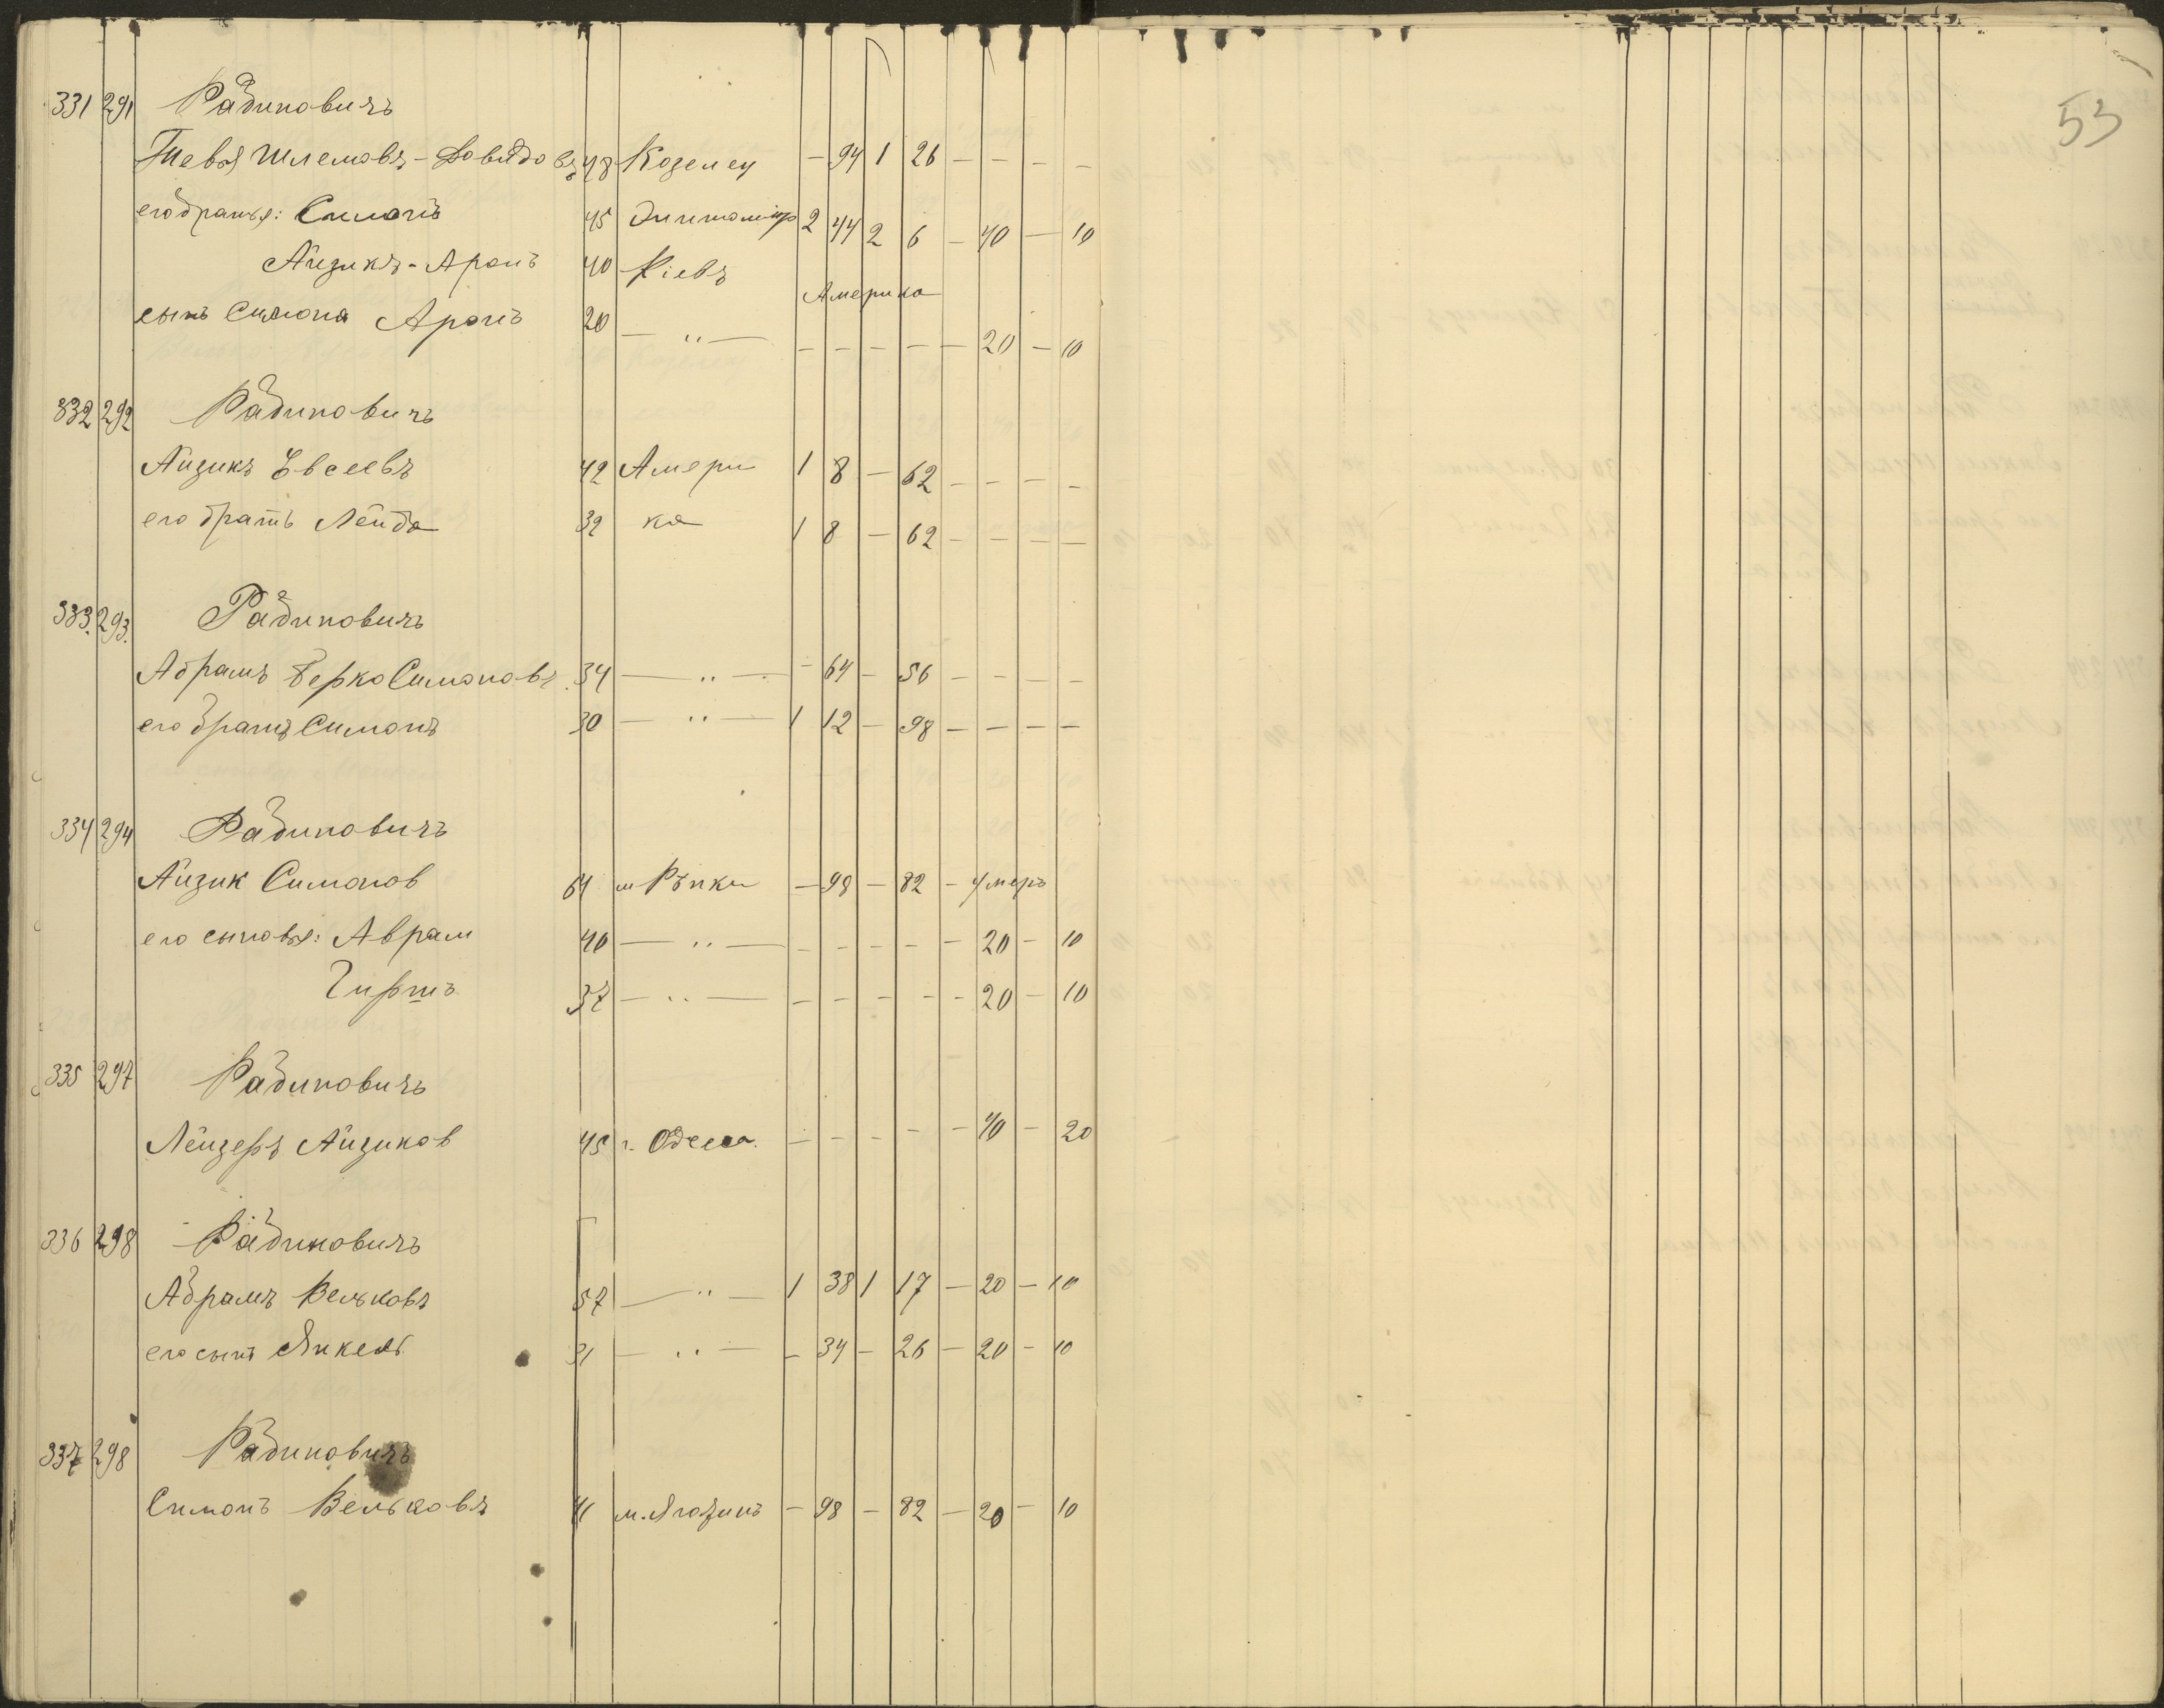 53
331 291 Рабиновичъ
Тевья Шлемовъ-Довидовъ 48 Козелец — 94 1 26 — — — —
его братья: Симонъ 45 Житомир 2 44 2 6 — 40 — 10
Айзикъ-Аронъ 40 Кіевъ Америка
сынъ Симона Аронъ 20 — " — — — — — — 20 — 10
332 292 Рабиновичъ
Айзикъ Евсеевъ 42 Амери 1 8 — 62 — — — —
его братъ Лейба 32 ка 1 8 — 62 — — — —
333. 293. Рабиновичъ
Абрамъ Берко Симоновъ 34 — " — — 64 — 56 — — — —
его братъ Симонъ 30 — " — 1 12 — 98 — — — —
334 294 Рабиновичъ
Айзик Симонов 64 м Рѣпки — 98 — 82 — умеръ
его сыновья: Аврам 40 — " — — — — — — 20 — 10
Гиршъ 37 — " — — — — — — 20 — 10
335 297 Рабиновичъ
Лейзеръ Айзиков 45 г. Одесса. — — — — — 40 — 20
336 298 Рабиновичъ
Абрамъ Вельковъ 57 — " — 1 38 1 17 — 20 — 10
его сынъ Янкель 31 — " — — 34 — 26 — 20 — 10
337 298 Рабиновичъ
Симонъ Вельковъ 41 м. Яготинъ — 98 — 82 — 20 — 10